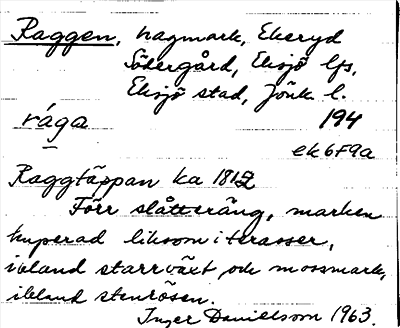 Raggen, hagmark, Ekeryd
Södergård, Eksjö lfs,
Eksjö stad, Jönk l.
råga 194
ek6F9a
Raggtäppan ka 1812
Förr slåtteräng, marken
kuperad liksom i terasser,
ibland starrväxt och mossmark,
ibland stenrösen.
Inger Danielsson 1963.